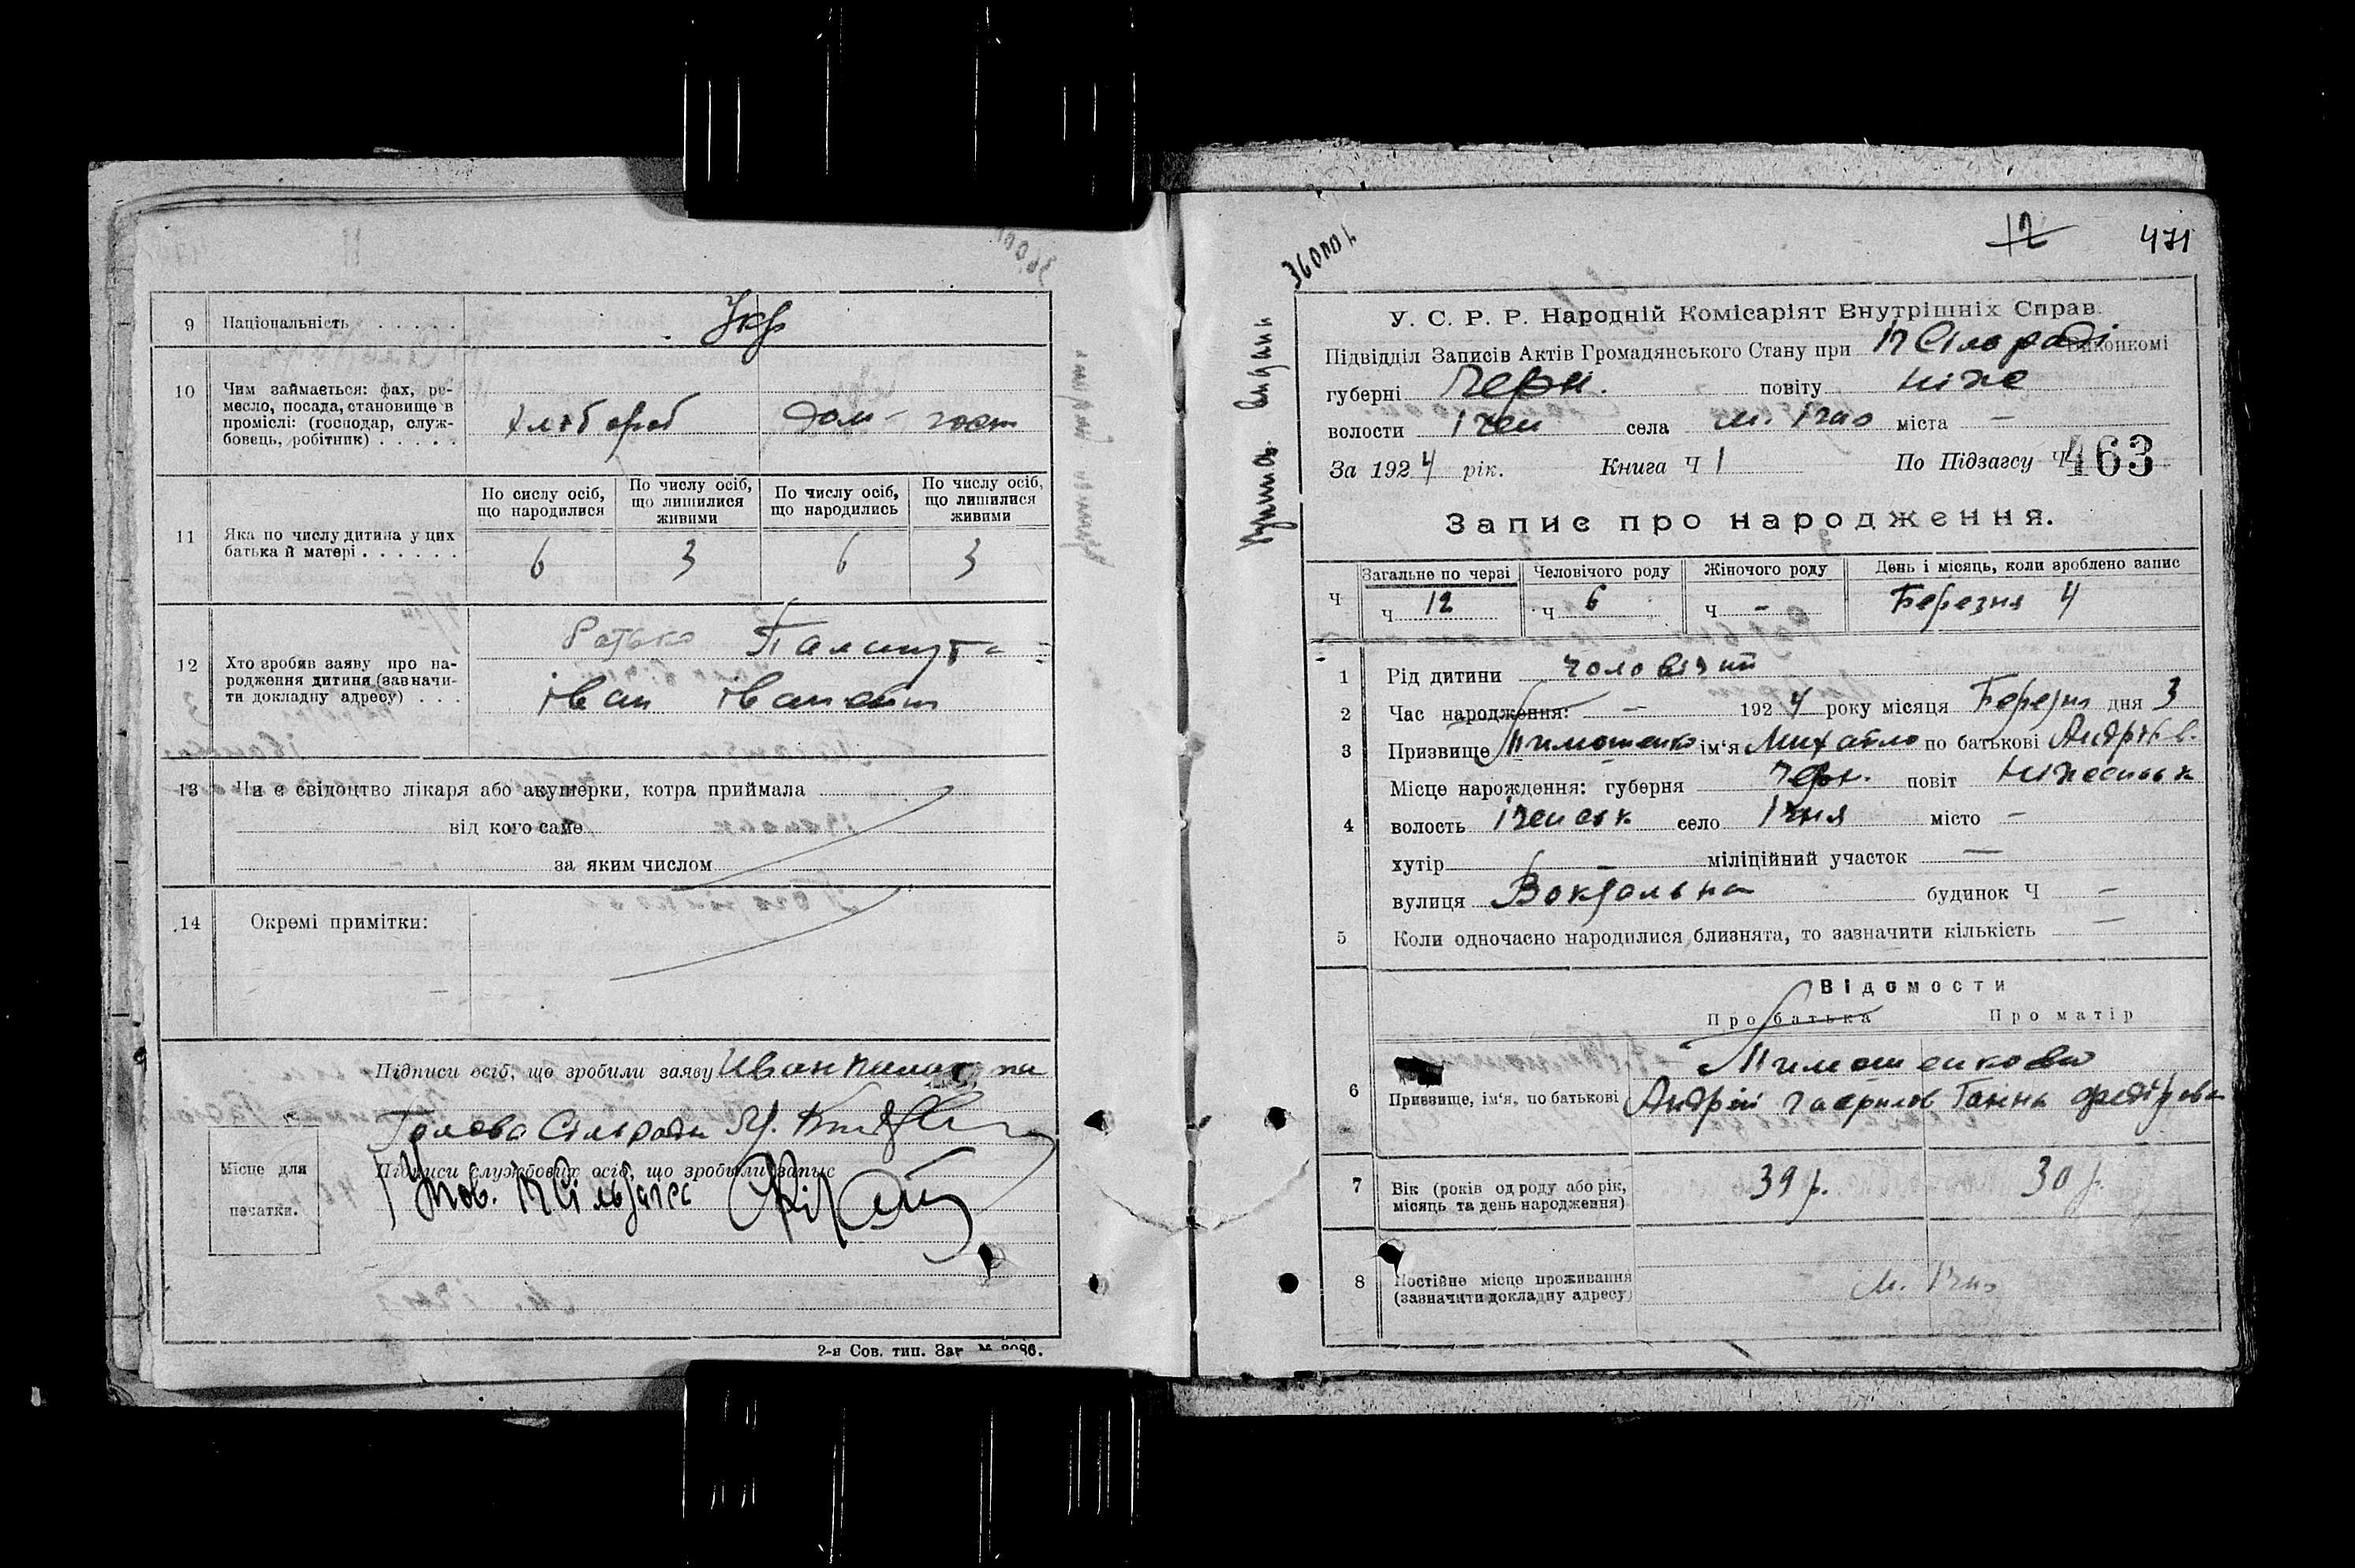 9 Національність . . . . . Укр
10 Чим займається: фах, ре-
месло, посада, становище в
проміслі: (господар, служ-
бовець, робітник) . . . . . хлібороб дом-госп
11 Яка по числу дитина у цих
батька й матері . . . . . .
По сислу осіб, що народилися
По числу осіб, що лишилися живими
По числу осіб, що народились
По числу осіб, що лишилися живими
6 3 6 3
12 Хто зробив заяву про на-
родження дитини (зазначи-
ти докладну адресу) . . .
Батько
Іван Іванович
13 Чи є свідоцтво лікаря або акушерки, котра приймала
від кого саме
за яким числом
14 Окремі примітки:
Підписи осіб, що зробили заяву Иван
Голова Сільради
Підписи службових осіб, що зробили запис
Місце для
печатки.
2-я Сов. тип. Заг
360001
12 471
У. С. Р. Р. Народній Комісаріят Внутрішніх Справ.
Підвідділ Записів Актів Громадянського Стану при Сільраді Виконкомі
губерні Черн. повіту Ніже
волости Ічен села м. Ічно міста —
За 1924 рік. Книга Ч 1 По Підзагсу Ч 463
Запис про народження.
Загальне по черзі Человічого роду Жіночого роду День і місяць, коли зроблено запис
Ч Ч 12 Ч 6 Ч — Березня 4
1 Рід дитини чоловічий
2 Час народження: — 1924 року місяця Березня дня 3
3 Призвище Тимошенко ім'я Михайло по батькові Андрієв.
4 Місце нарождення: губерня Черн. повіт Ніженськ
волость Іченськ село Ічня місто —
хутір — міліційний участок —
вулиця Вокзальна будинок Ч —
5 Коли одночасно народилися близнята, то зазначити кількість —
Відомости
Про батька Про матір
6 Призвище, ім'я, по батькові
Тимошенкови
Андрій Гаврилов Ганна Федірова
7 Вік (років од роду або рік,
місяць та день народження) 39 р. 30 р.
8 Постійне місце проживання
(зазначити докладну адресу) м. Ічно